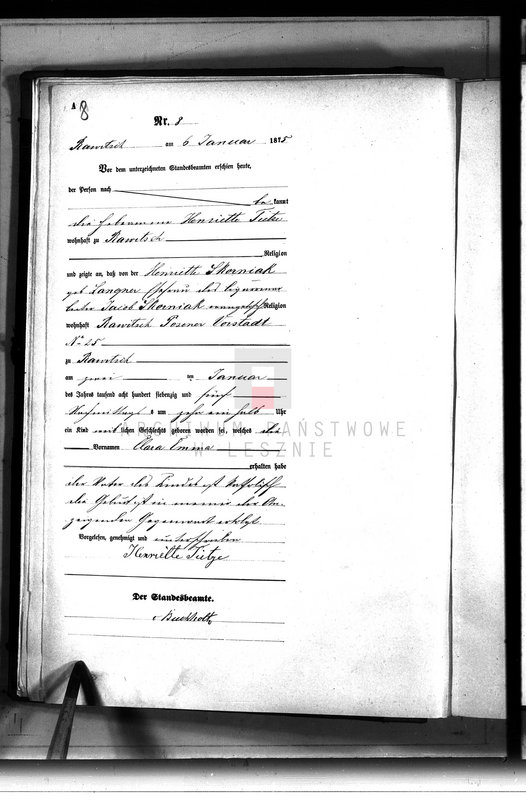 A 8
Nr. 8
Rawitsch am 6 Januar 1875
Vor dem unterzeichneten Standesbeamten erschien heute,
der Person nach
be kannt
die Hebamme Henriette Tietze
wohnhaft zu Rawitsch
Religion
und zeigte an, daß von der Henriette Skorniak
geb Langner Ehefrau des
Jacob Skorniak evangelisch Religion
wohnhaft Rawitsch Posener Vorstadt
No 25
zu Rawitsch
am zwei ten Januar
des Jahres tausend acht hundert siebenzig und fünf
Nachmittags um zehn ein halb Uhr
ein Kind weib lichen Geschlechts geboren worden sei, welches die
Vornamen Clara Emma
erhalten habe
der Vater des Kindes ist katholisch
die Geburt ist in meiner der An-
zeigenden Gegenwart erfolgt
Vorgelesen, genehmigt und unterschrieben
Henriette Tietze
Der Standesbeamte.
Buchholtz
ARCHIWUM PAŃSTWOWE
W LESZNIE